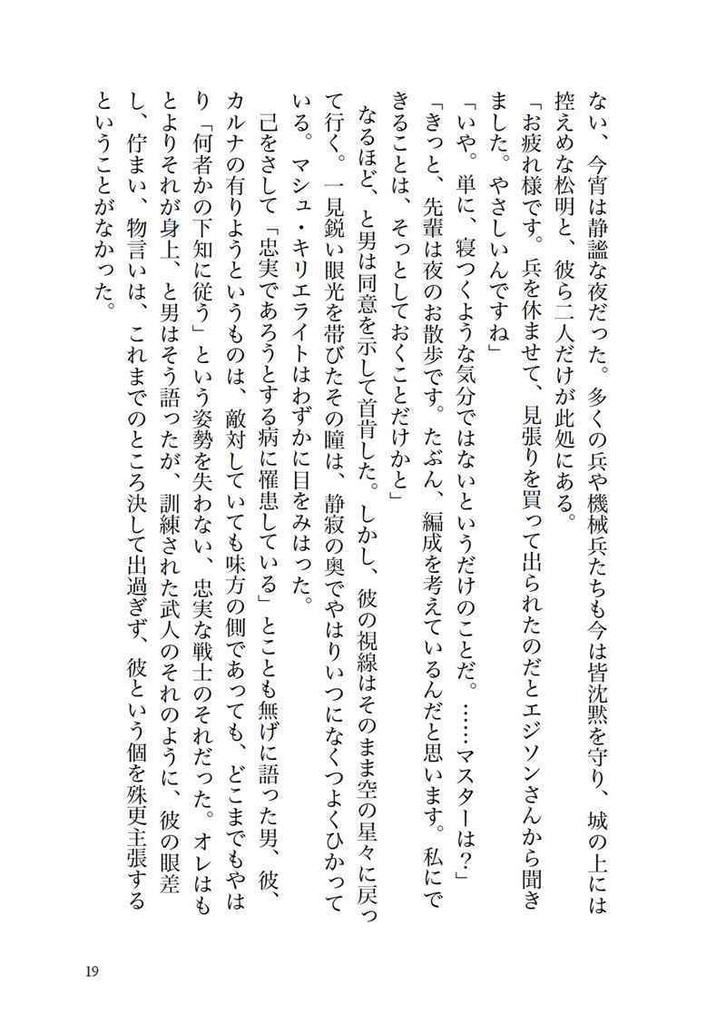 ない、今宵は静謐な夜だった。多くの兵や機械兵たちも今は皆沈黙を守り、城の上には
控えめな松明と、彼ら二人だけが此処にある。
「お疲れ様です。兵を休ませて、見張りを買って出られたのだとエジソンさんから聞き
ました。やさしいんですね」
「いや。単に、寝つくような気分ではないというだけのことだ。……マスターは？」
「きっと、先輩は夜のお散歩です。たぶん、編成を考えているんだと思います。私にで
きることは、そっとしておくことだけかと」
なるほど、と男は同意を示して首肯した。しかし、彼の視線はそのまま空の星々に戻っ
て行く。一見鋭い眼光を帯びたその瞳は、静寂の奥でやはりいつになくつよくひかって
いる。マシュ・キリエライトはわずかに目をみはった。
己をさして「忠実であろうとする病に罹患している」とことも無げに語った男、彼、
カルナの有りようというものは、敵対していても味方の側であっても、どこまでもやは
り「何者かの下知に従う」という姿勢を失わない、忠実な戦士のそれだった。オレはも
とよりそれが身上、と男はそう語ったが、訓練された武人のそれのように、彼の眼差
し、佇まい、物言いは、これまでのところ決して出過ぎず、彼という個を殊更主張する
ということがなかった。
19